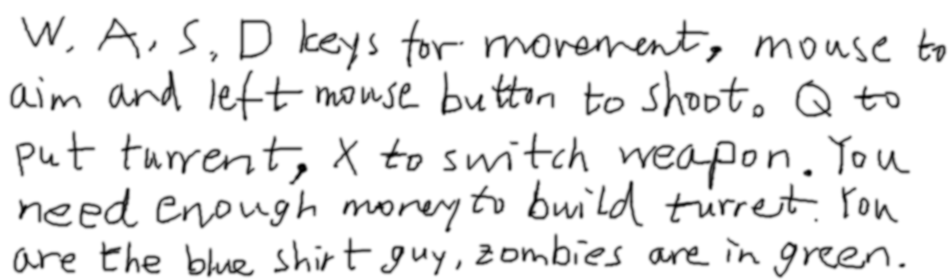 W, A, S, D keys for movement, mouse to
aim and left mouse button to shoot. Q to
put turrent, X to switch weapon. You
need enough money to build turret. You
are the blue shirt guy, zombies are in green.